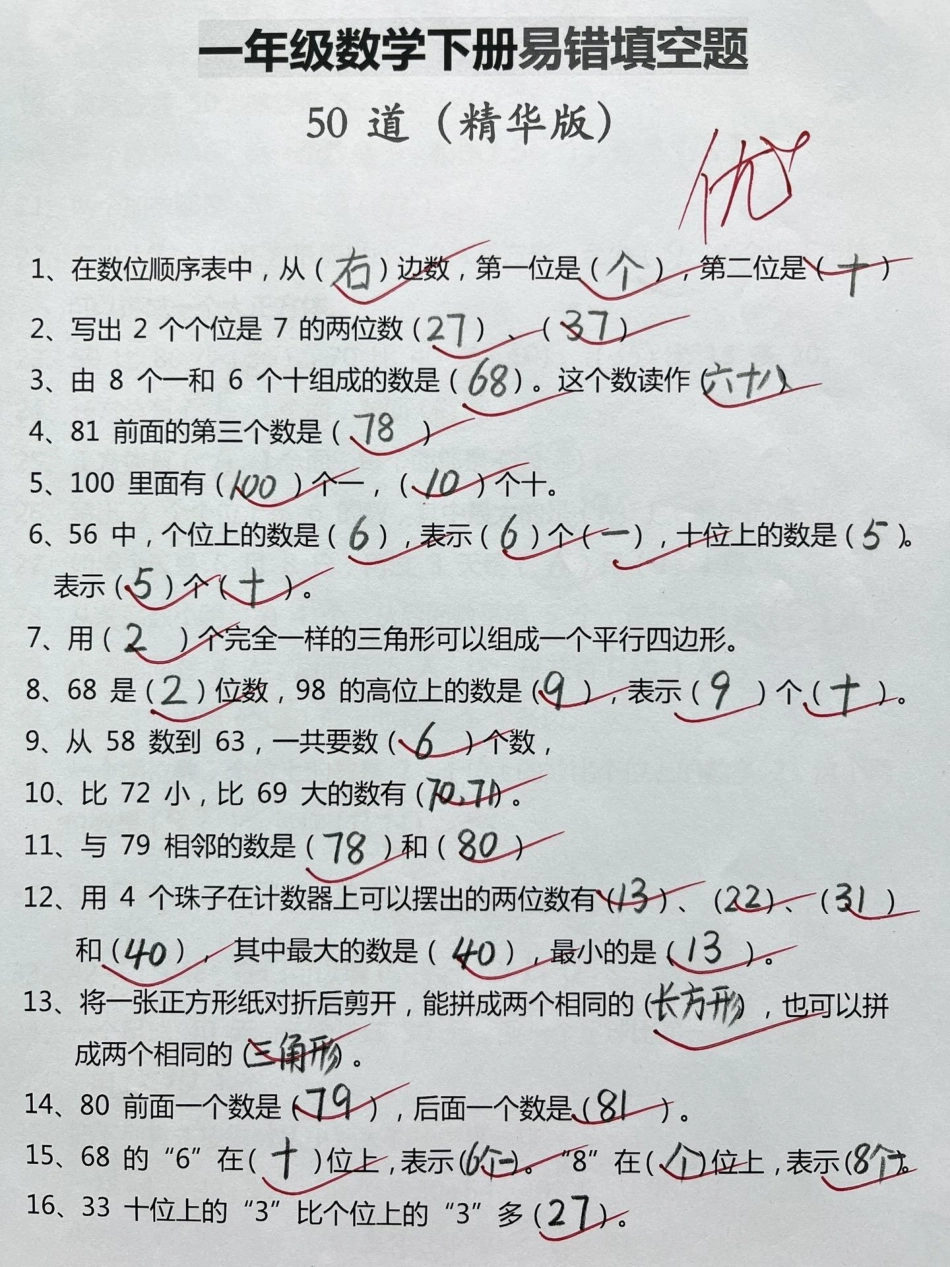 一年级数学下册易错填空题
50 道（精华版）
优
1、在数位顺序表中，从（右）边数，第一位是（个），第二位是（十）
2、写出 2 个个位是 7 的两位数（27）、（37）
3、由 8 个一和 6 个十组成的数是（68）。这个数读作（六十八）
4、81 前面的第三个数是（78）
5、100 里面有（100）个一，（10）个十。
6、56 中，个位上的数是（6），表示（6）个（一），十位上的数是（5）。
表示（5）个（十）。
7、用（2）个完全一样的三角形可以组成一个平行四边形。
8、68 是（2）位数，98 的高位上的数是（9），表示（9）个（十）。
9、从 58 数到 63，一共要数（6）个数，
10、比 72 小，比 69 大的数有（70、71）。
11、与 79 相邻的数是（78）和（80）
12、用 4 个珠子在计数器上可以摆出的两位数有（13）、（22）、（31）
和（40），其中最大的数是（40），最小的是（13）。
13、将一张正方形纸对折后剪开，能拼成两个相同的（长方形），也可以拼
成两个相同的（三角形）。
14、80 前面一个数是（79），后面一个数是（81）。
15、68 的“6”在（十）位上，表示（6个一）。“8”在（个）位上，表示（8个一）。
16、33 十位上的“3”比个位上的“3”多（27）。